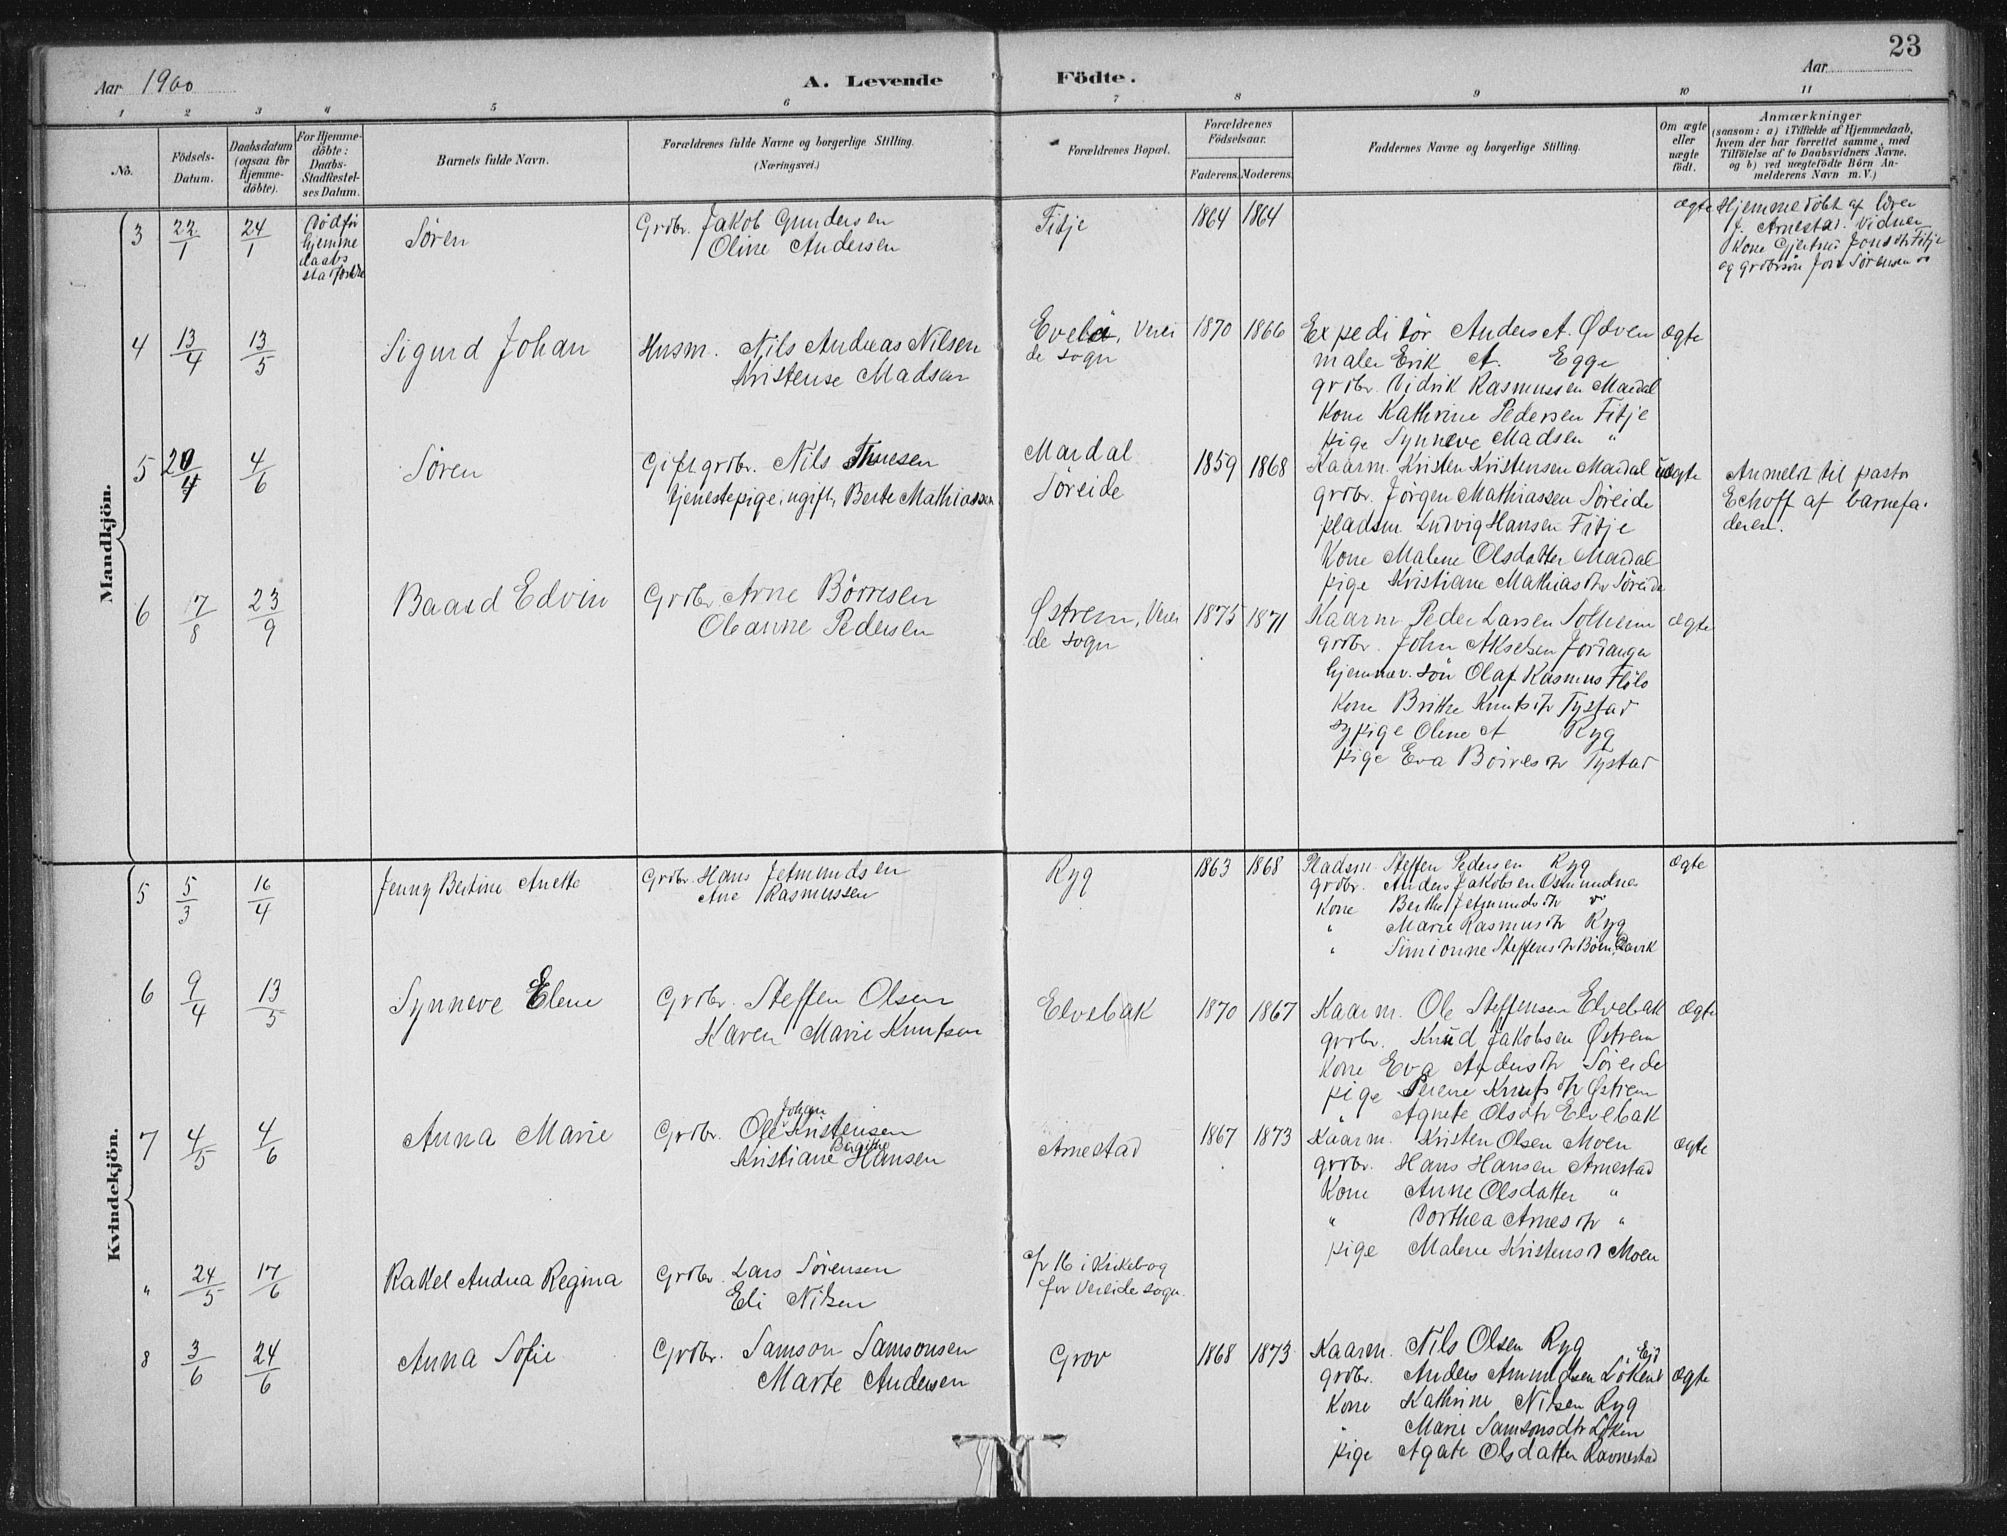 23
Aar 1900
A. Levende Födte.
Aar
1 2 3 4 5 6 7 8 9 10 11
No.
Födsels-Datum.
Daabsdatum (ogsaa for Hjemmedöbte).
For Hjemmedöbte: Daabs-Stadfæstelses Datum.
Barnets fulde Navn.
Forældrenes fulde Navne og borgerlige Stilling. (Næringsvei.)
Forældrenes Bopæl.
Forældrenes Födselsaar.
Faderens. Moderens.
Faddernes Navne og borgerlige Stilling.
Om ægte eller uægte födt.
Anmærkninger
(saasom: a) i Tilfælde af Hjemmedaab,
hvem der har forrettet samme, med
Tilföielse af to Daabsvidners Navne.
og b) ved uægtefödte Börn Anmelderens Navn m. V.)
Mandkjön.
3 22/1 24/1 Død før hjemme daabs stadfestelse Søren Grdbr. Jakob Gundersen Fitje 1864 1864 ægte Hjemmedøbt af lærer
Oline Andersen J. Arnestad. Vidner
Kone Gjertine Jonsdtr Fitje
og grdbrsøn Jon Sørensen do
4 13/4 13/5 Sigurd Johan Husm. Nils Andreas Nilsen Evebø, Verei 1870 1866 Expeditör Anders A. Ødven ægte
Kristense Madsen de sogn maler Erik A. Egge
grdbr. Didrik Rasmussen Mardal
Kone Kathrine Pedersen Fitje
pige Synneve Madsen "
5 20/4 4/6 Søren Gift grdbr. Nils Thuesen Mardal 1859 1868 Kaarm. Kristen Kristensen Mardal uægte Anmeldt til pastor
tjenestepige, ugift, Berte Mathiassen Søreide grdbr. Jörgen Mathiassen Søreide Eckoff af barnefa-
pladsm. Ludvig Hansen Fitje deren.
Kone Malene Olsdatter Mardal
pige Kristiane Mathiasdtr Søreide
6 17/8 23/9 Baard Edvin Grdbr Arne Börresen Østrem, Verei 1875 1871 Kaarm. Peder Larsen Solheim ægte
Oleanne Pedersen de sogn grdbr. John Akselsen Jordanger
hjemmev. søn Olaf Rasmus Fløto
Kone Brithe Knutsdtr Tystad
sypige Oline A Ryg
pige Eva Börresdtr Tystad
Kvindekjön.
5 5/3 16/4 Jenny Bertine Anette Grdbr. Hans Jetmundsen Ryg 1863 1868 Pladsm. Steffen Pedersen Ryg ægte
Ane Rasmussen grdbr. Anders Jakobsen Osmundnes
Kone Berthe Jetmundsdtr do
" Marie Rasmusdtr Ryg
" Simionne Steffensdtr Böen, Davik
6 9/4 13/5 Synneve Elene Grdbr. Steffen Olsen Elvebak 1870 1867 Kaarm. Ole Steffensen Elvebak ægte
Karen Marie Knutsen grdbr. Knud Jakobsen Østrem
Kone Eva Andersdtr Søreide
pige Perene Knutsdtr Østrem
" Agnete Olsdtr Elvebak
7 4/5 4/6 Anna Marie Grdbr. Ole Johan Kristensen Arnestad 1867 1873 Kaarm. Kristen Olsen Moen ægte
Kristiane Bergithe Hansen grdbr. Hans Hansen Arnestad
Kone Anne Olsdatter "
" Dorthea Arnesdtr "
pige Malene Kristensd Moen
" 24/5 17/6 Rakel Andrea Regina Grdbr. Lars Sørensen cfr 16 i Kirkebog
Eli Nilsen for Vereide sogn.
8 3/6 24/6 Anna Sofie Grdbr. Samson Samsonsen Grov 1868 1873 Kaarm. Nils Olsen Ryg
Marte Andersen grdbr. Anders Amundsen Löken Eid ægte
Kone Kathrine Nilsen Ryg
" Marie Samsonsdtr Löken
pige Agate Olsdatter Ravnestad